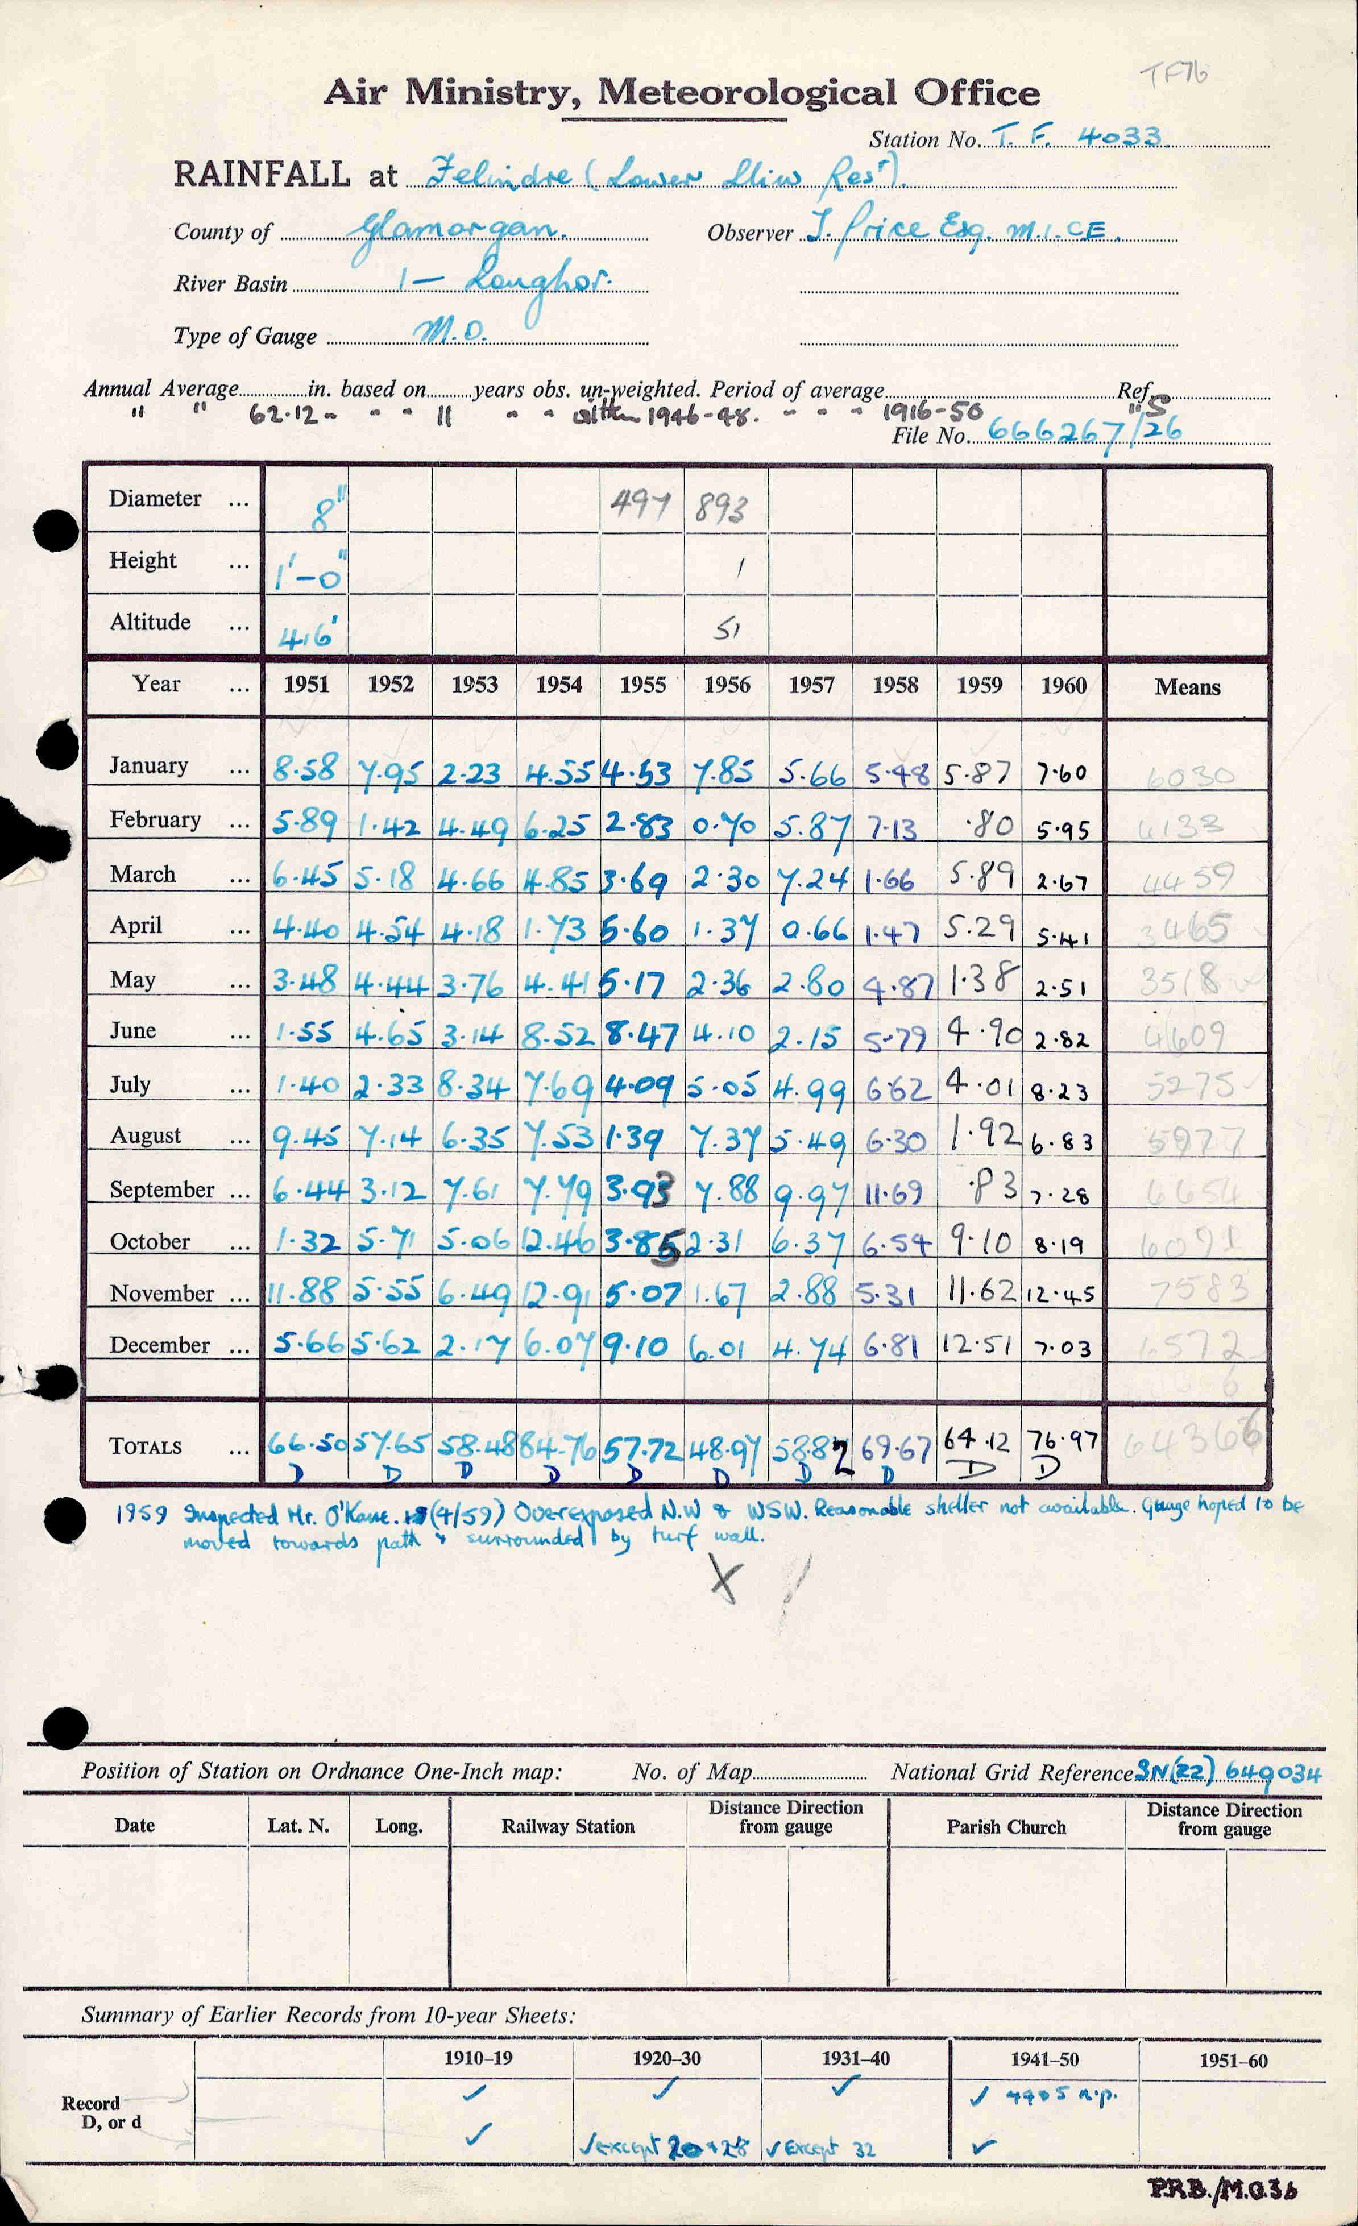 TF76
Air Ministry, Meteorological Office
Station No. T. F. 4033
RAINFALL at Felindre (Lower Lliw Resr).
County of Glamorgan. Observer T. Price Esq. M.I.CE.
River Basin 1 — Loughor.
Type of Gauge M.O.
Annual Average in. based on years obs. un-weighted. Period of average Ref.
" " 62.12 " " " 11 " " " 1946-48. " " " 1916-50 "S
File No. 666267/26
Diameter ... 8" 497 893
Height ... 1'-0" 1
Altitude ... 416' 51
Year ... 1951 1952 1953 1954 1955 1956 1957 1958 1959 1960 Means
January ... 8.58 7.95 2.23 4.55 4.53 7.85 5.66 5.48 5.87 7.60 6030
February ... 5.89 1.42 4.49 6.25 2.83 0.70 5.87 7.13 .80 5.95 4133
March ... 6.45 5.18 4.66 4.85 3.69 2.30 7.24 1.66 5.89 2.67 4459
April ... 4.40 4.54 4.18 1.73 5.60 1.37 0.66 1.47 5.29 5.41 3465
May ... 3.48 4.44 3.76 4.41 5.17 2.36 2.80 4.87 1.38 2.51 3518
June ... 1.55 4.65 3.14 8.52 8.47 4.10 2.15 5.79 4.90 2.82 4609
July ... 1.40 2.33 8.34 7.69 4.09 5.05 4.99 6.62 4.01 8.23 5275
August ... 9.45 7.14 6.35 7.53 1.39 7.37 5.49 6.30 1.92 6.83 5977
September ... 6.44 3.12 7.61 7.79 3.93 7.88 9.97 11.69 .83 7.28 6654
October ... 1.32 5.71 5.06 12.46 3.85 2.31 6.37 6.54 9.10 8.19 6091
November ... 11.88 5.55 6.49 12.91 5.07 1.67 2.88 5.31 11.62 12.45 7583
December ... 5.66 5.62 2.17 6.07 9.10 6.01 4.74 6.81 12.51 7.03 6572
TOTALS ... 66.50 57.65 58.48 84.76 57.72 48.97 58.82 69.67 64.12 76.97 64366
D D D D D D D D D D
1959 Inspected Mr. O'Kane. (4/59) Overexposed N.W & WSW. Reasonable shelter not available. Gauge hoped to be
moved towards path & surrounded by turf wall.
X /
Position of Station on Ordnance One-Inch map: No. of Map National Grid Reference SN(22) 649034
Date Lat. N. Long. Railway Station Distance Direction from gauge Parish Church Distance Direction from gauge
Summary of Earlier Records from 10-year Sheets:
1910–19 1920–30 1931–40 1941–50 1951–60
Record ✓ ✓ ✓ ✓ 4905 n.p.
D, or d ✓ ✓except 20 & 28 ✓ Except 32 ✓
P.R.B./M.O.3b